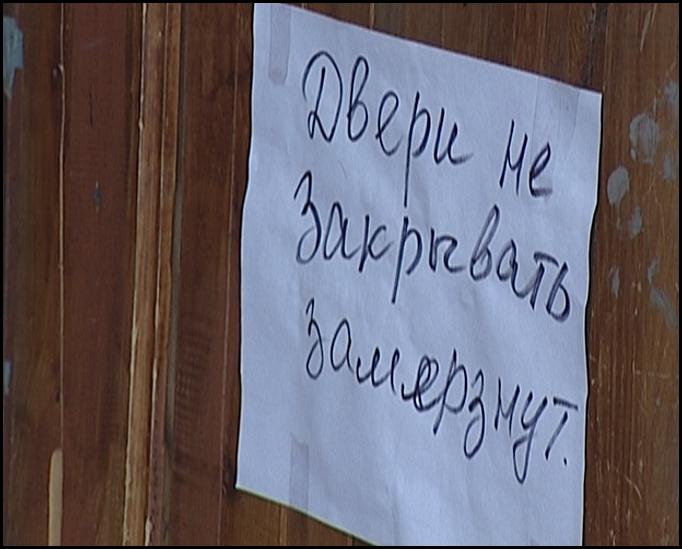 Двери не
Закрывать
замерзнут.